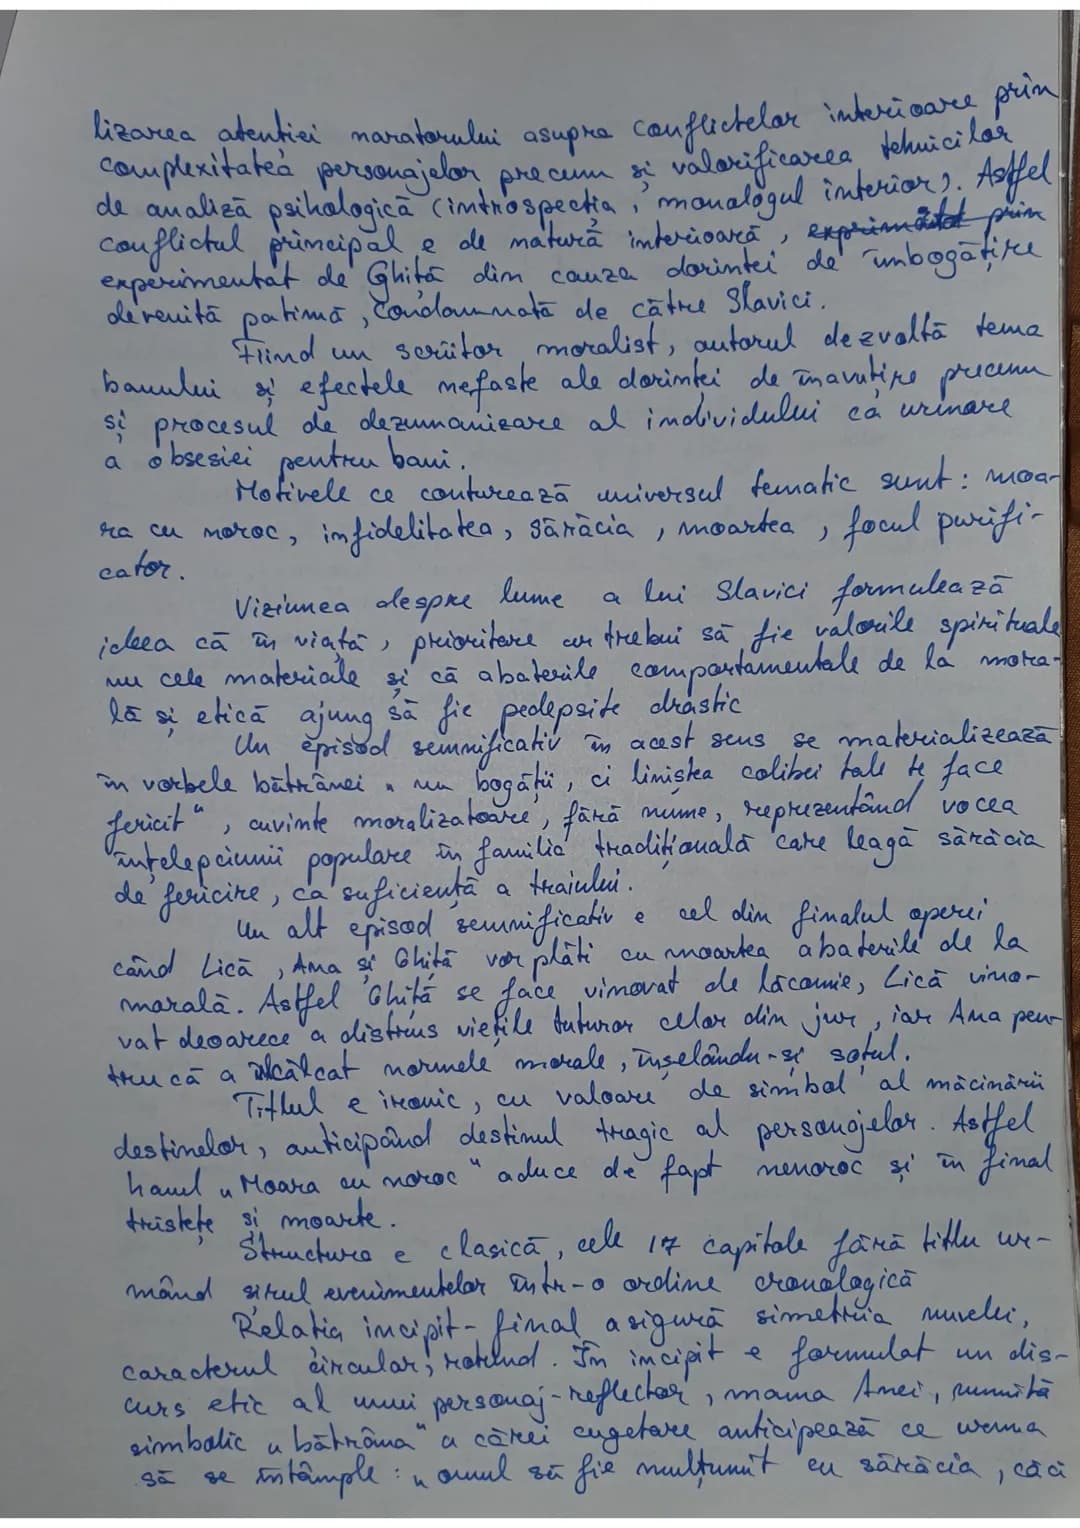 lizarea atenției naratorului asupra conflictelor interioare prin
complexitatea personajelor precum și valorificarea tehnicilor
de analiză psihologică (introspecția, monologul interior). Astfel
conflictul principal e de natură interioară, exprimătat prin
experimentat de Ghiță din cauza dorinței de îmbogățire
devenită patimă, condamnată de către Slavici.
Fiind un scriitor moralist, autorul dezvoltă tema
banului și efectele nefaste ale dorinței de înavuțire precum
și procesul de dezumanizare al individului ca urmare
a obsesiei pentru bani.
Motivele ce conturează universul tematic sunt: moa-
ra cu noroc, infidelitatea, sărăcia, moartea, focul purifi-
cator.
Viziunea despre lume a lui Slavici formulează
ideea că în viață, prioritare ar trebui să fie valorile spirituale
nu cele materiale și că abaterile comportamentale de la mora-
lă și etică ajung să fie pedepsite drastic
Un episod semnificativ în acest sens se materializează
în vorbele bătrânei „nu bogății, ci liniștea colibei tale te face
fericit", cuvinte moralizatoare, fără nume, reprezentând vocea
înțelepciunii populare în familia tradițională care leagă sărăcia
de fericire, ca suficiență a traiului.
Un alt episod semnificativ e cel din finalul operei
când Lică, Ana și Ghiță vor plăti cu moartea abaterile de la
morală. Astfel Ghiță se face vinovat de lăcomie, Lică vino-
vat deoarece a distrus viețile tuturor celor din jur, iar Ana pen-
tru că a încălcat normele morale, înșelându-și soțul.
Titlul e ironic, cu valoare de simbol al măcinării
destinelor, anticipând destinul tragic al personajelor. Astfel
hanul „Moara cu noroc" aduce de fapt nenoroc și în final
tristețe și moarte.
Structura e clasică, cele 17 capitole fără titlu ur-
mând șirul evenimentelor într-o ordine cronologică
Relația incipit-final asigură simetria nuvelei,
caracterul circular, rotund. În incipit e formulat un dis-
curs etic al unui personaj-reflector, mama Anei, numită
simbolic „bătrâna" a cărei cugetare anticipează ce urma
să se întâmple: „omul să fie mulțumit cu sărăcia, căci